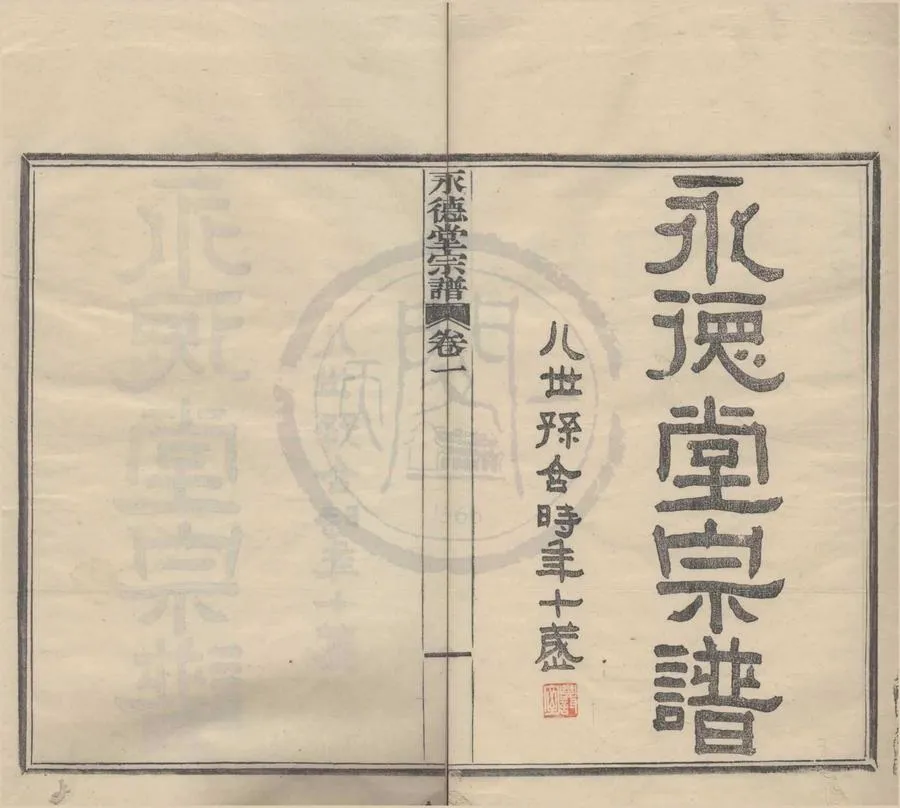 永德堂宗譜
八世孫含時年十歲
永德堂宗譜 卷一
1566